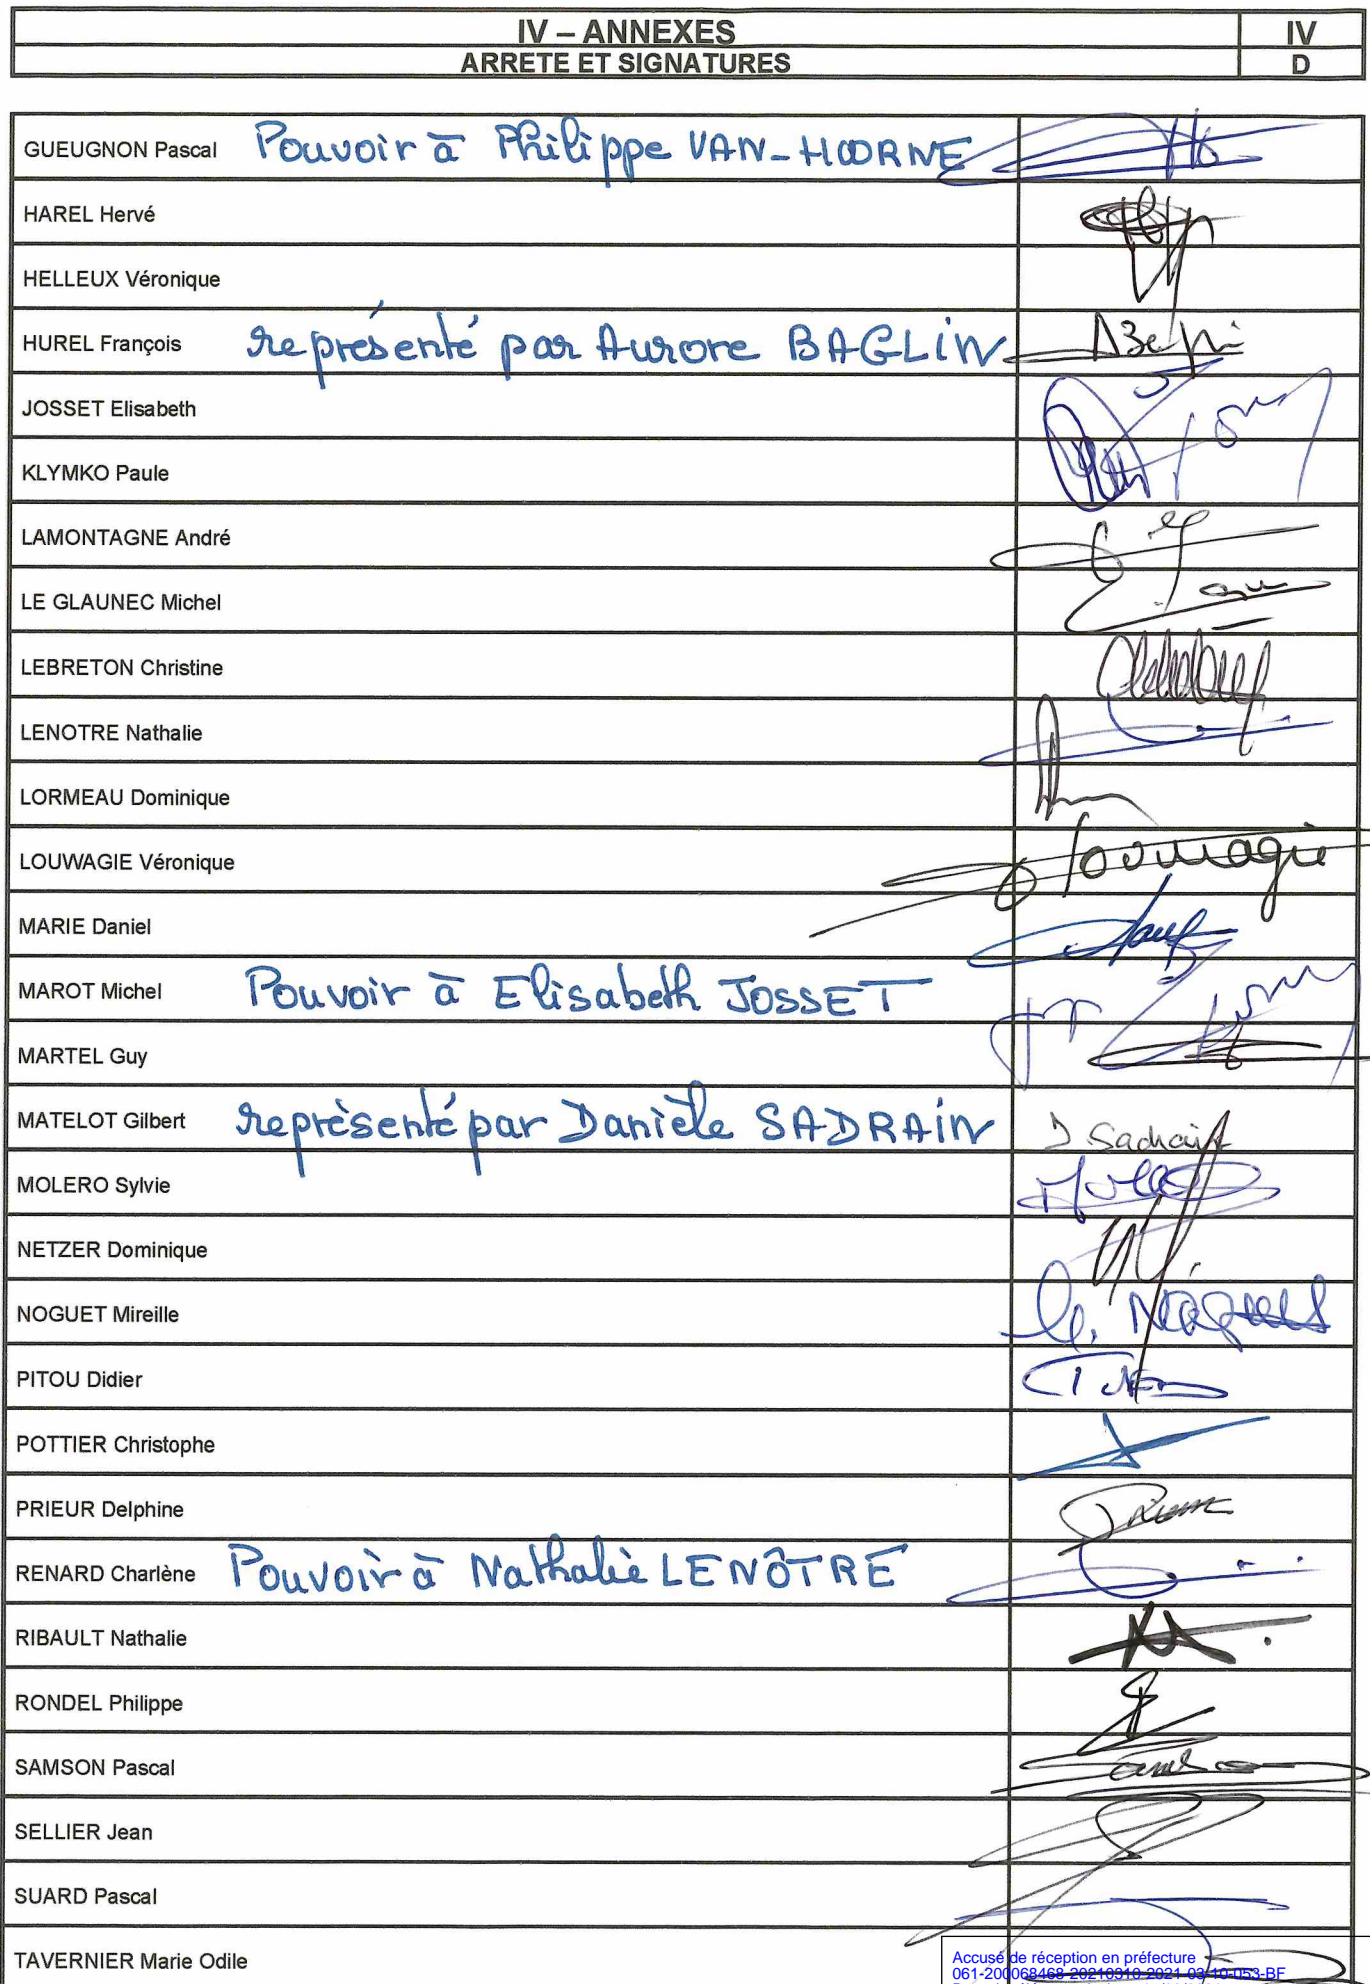 IV – ANNEXES IV
ARRETE ET SIGNATURES D
GUEUGNON Pascal Pouvoir à Philippe VAN-HOORNE
HAREL Hervé
HELLEUX Véronique
HUREL François représenté par Aurore BAGLIN
JOSSET Elisabeth
KLYMKO Paule
LAMONTAGNE André
LE GLAUNEC Michel
LEBRETON Christine
LENOTRE Nathalie
LORMEAU Dominique
LOUWAGIE Véronique
MARIE Daniel
MAROT Michel Pouvoir à Elisabeth JOSSET
MARTEL Guy
MATELOT Gilbert représenté par Danièle SADRAIN
MOLERO Sylvie
NETZER Dominique
NOGUET Mireille
PITOU Didier
POTTIER Christophe
PRIEUR Delphine
RENARD Charlène Pouvoir à Nathalie LENÔTRE
RIBAULT Nathalie
RONDEL Philippe
SAMSON Pascal
SELLIER Jean
SUARD Pascal
TAVERNIER Marie Odile
Accusé de réception en préfecture
061-200068468-20210310-2021-03-10-053-BF